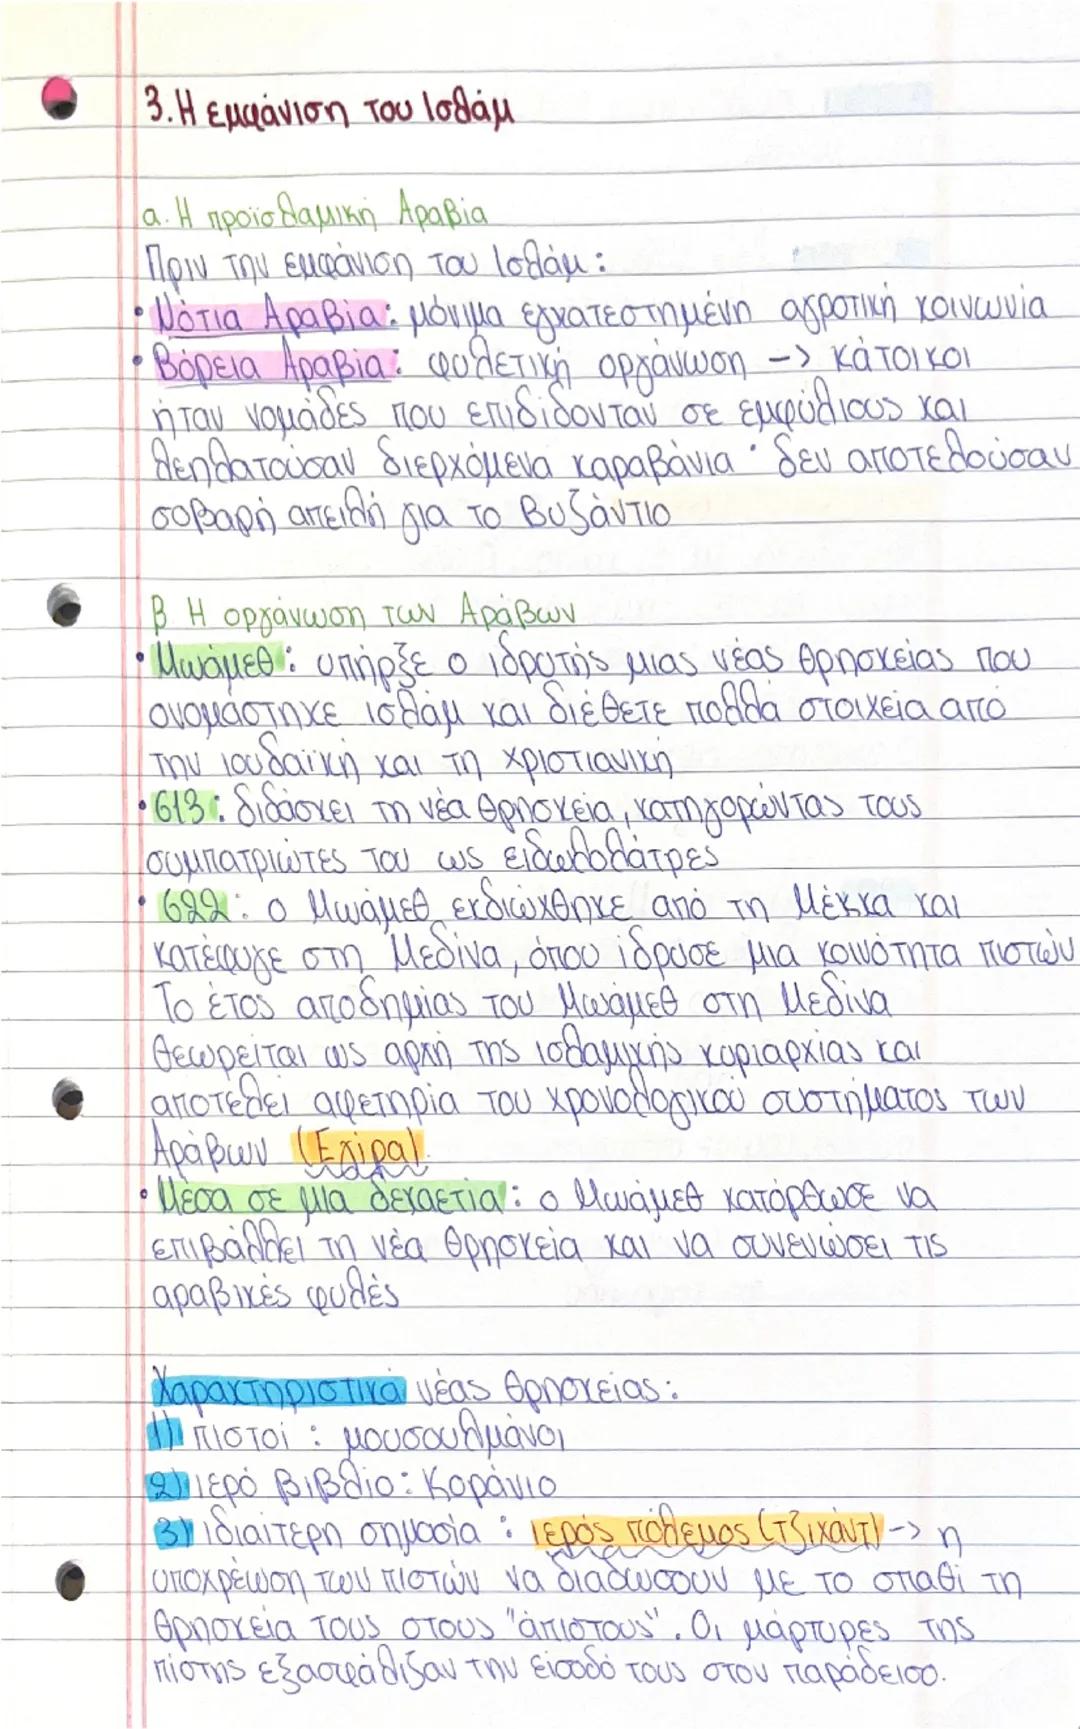 3. Η εμφάνιση του Ισλάμ
α. Η προϊσλαμική Αραβία
Πριν την εμφάνιση του Ισλάμ :
• Νότια Αραβία : μόνιμα εγκατεστημένη αγροτική κοινωνία
• Βόρεια Αραβία : φυλετική οργάνωση -> κάτοικοι
ήταν νομάδες που επιδίδονταν σε εμφύλιους και
λεηλατούσαν διερχόμενα καραβάνια · δεν αποτελούσαν
σοβαρή απειλή για το Βυζάντιο
β Η οργάνωση των Αράβων
• Μωάμεθ : υπήρξε ο ιδρυτής μιας νέας θρησκείας που
ονομάστηκε ισλάμ και διέθετε πολλά στοιχεία από
την ιουδαϊκή και τη χριστιανική
• 613 : διδάσκει τη νέα θρησκεία, κατηγορώντας τους
συμπατριώτες του ως ειδωλολάτρες
• 622 : ο Μωάμεθ εκδιώχθηκε από τη Μέκκα και
κατέφυγε στη Μεδίνα, όπου ίδρυσε μια κοινότητα πιστών
Το έτος αποδημίας του Μωάμεθ στη Μεδίνα
θεωρείται ως αρχή της ισλαμικής κυριαρχίας και
αποτελεί αφετηρία του χρονολογικού συστήματος των
Αράβων (Εγίρα).
• Μέσα σε μια δεκαετία : ο Μωάμεθ κατόρθωσε να
επιβάλλει τη νέα θρησκεία και να συνενώσει τις
αραβικές φυλές
Χαρακτηριστικά νέας θρησκείας :
1) πιστοί : μουσουλμάνοι
2) ιερό βιβλίο : Κοράνιο
3) ιδιαίτερη σημασία : ιερός πόλεμος (τζιχάντ) -> η
υποχρέωση των πιστών να διαδώσουν με το σπαθί τη
θρησκεία τους στους "άπιστους". Οι μάρτυρες της
πίστης εξασφάλιζαν την είσοδό τους στον παράδεισο.